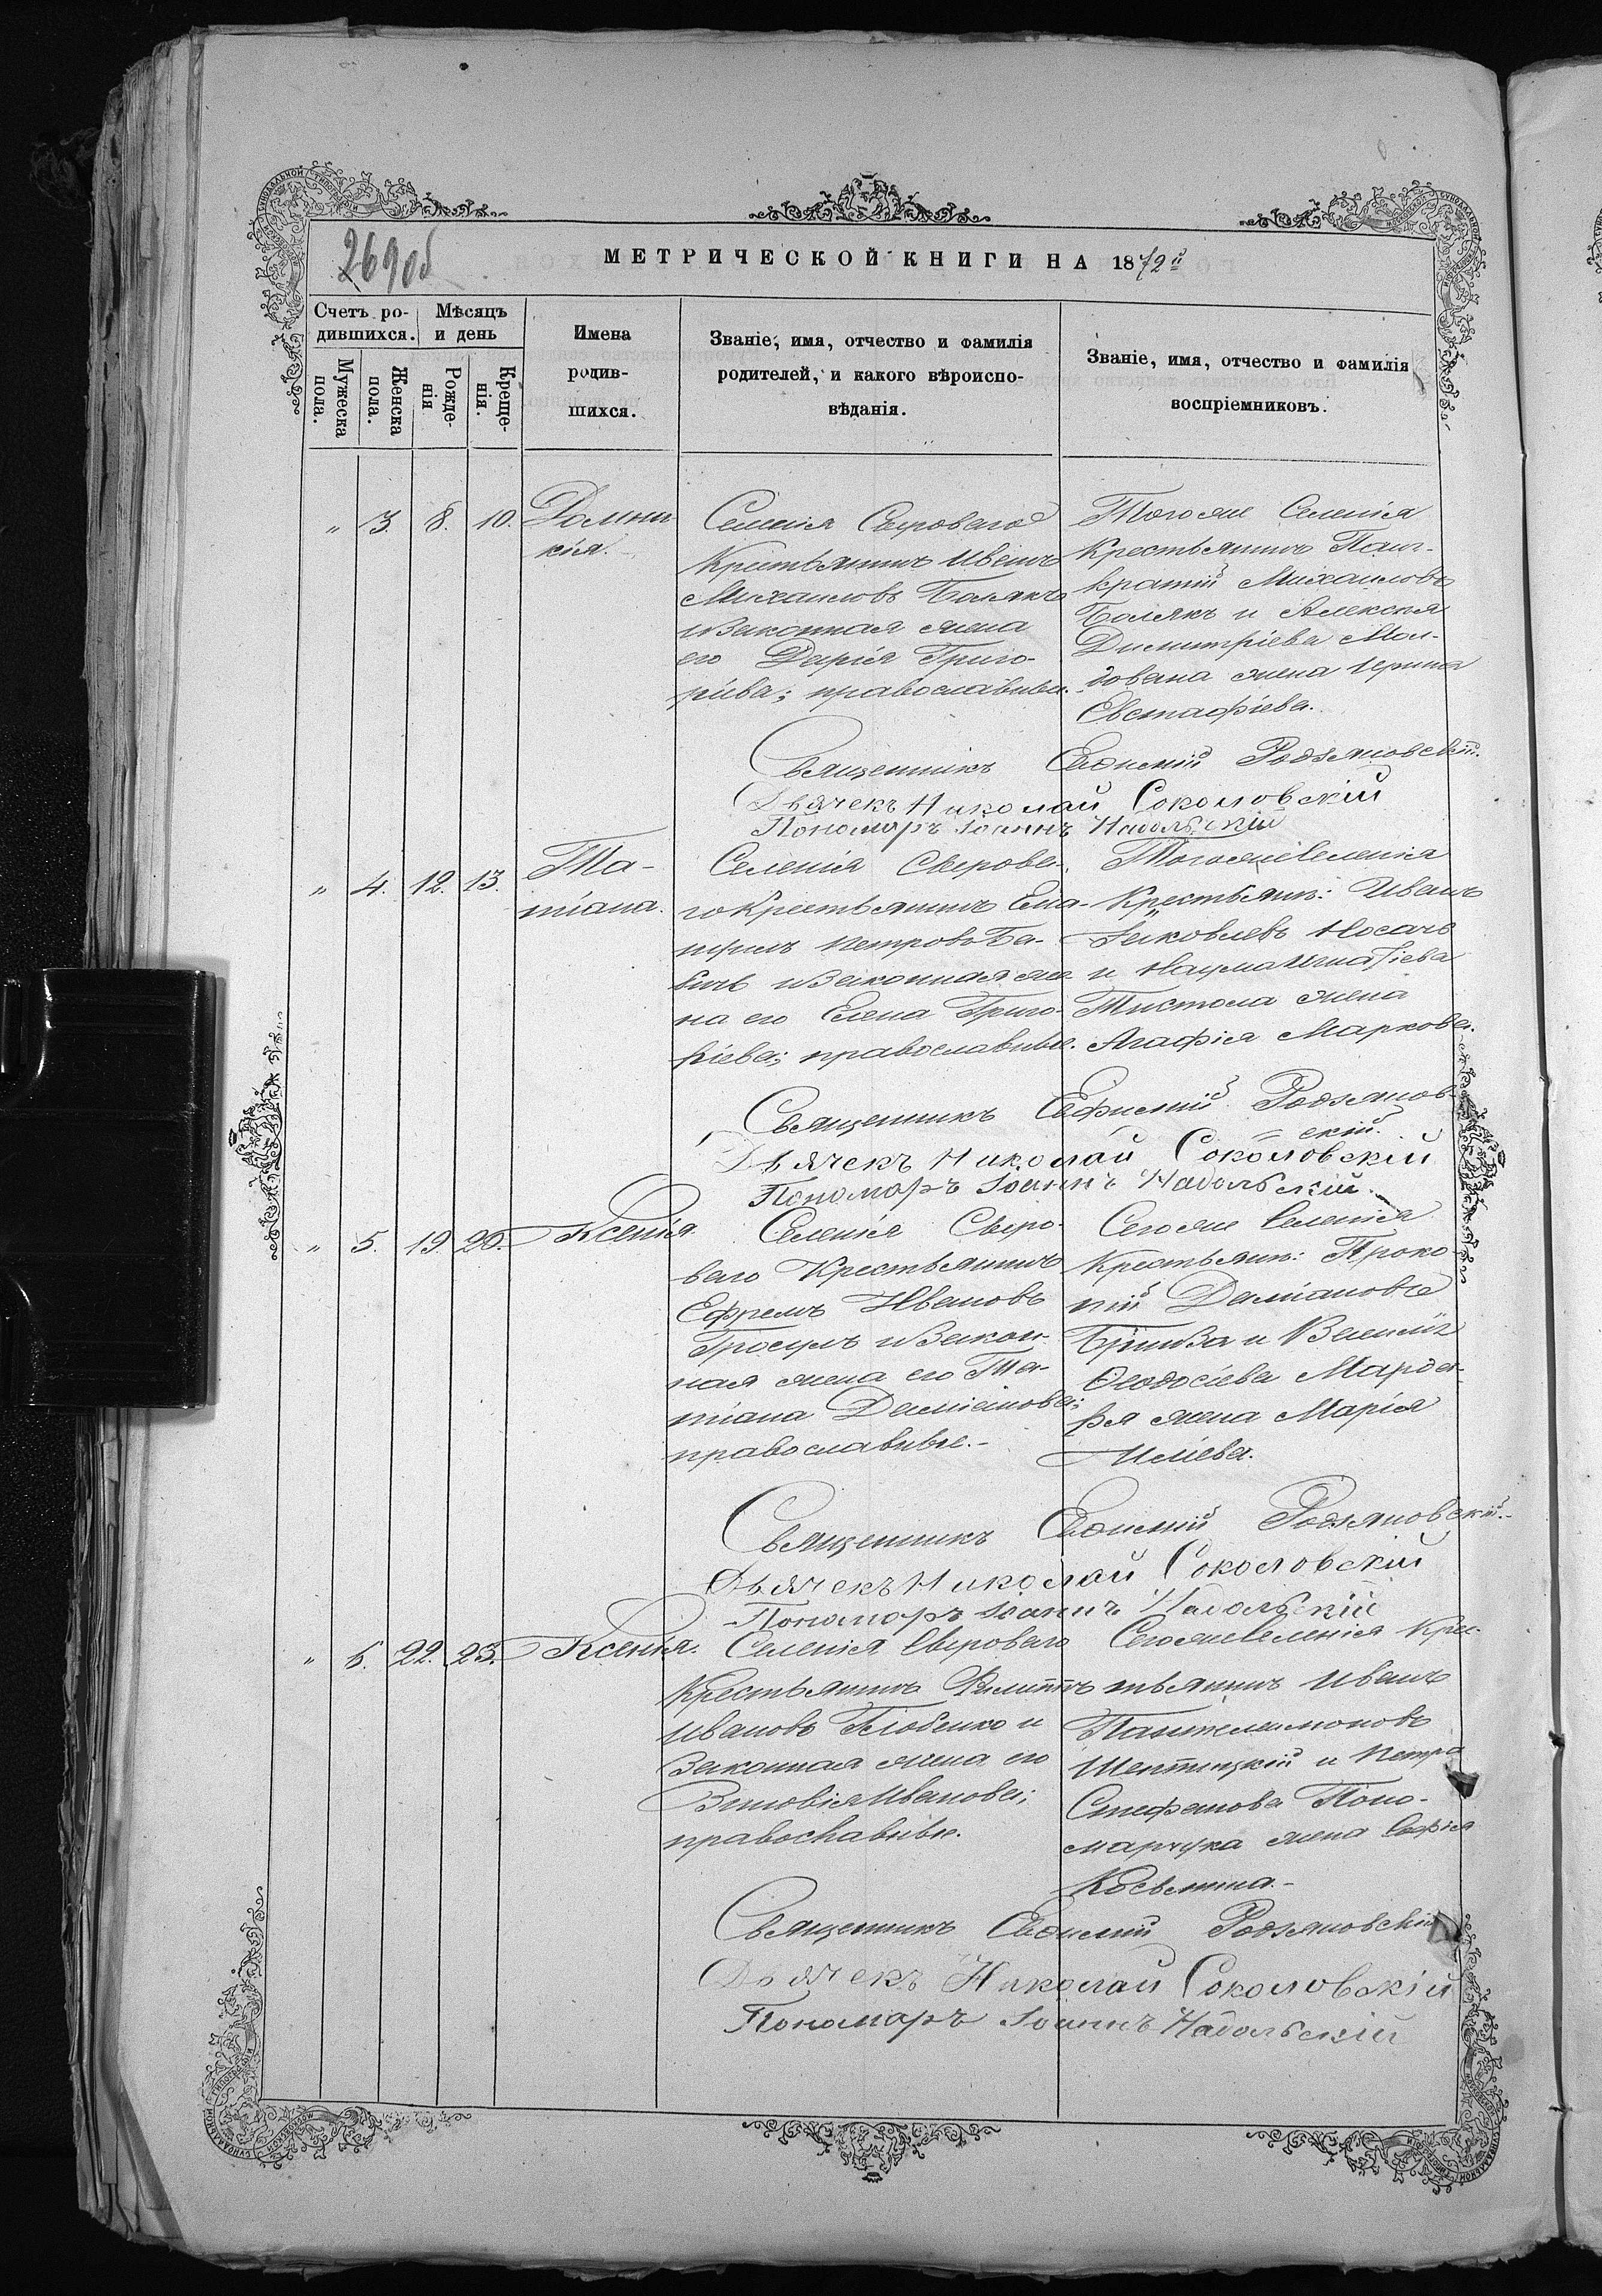 269об
МЕТРИЧЕСКОЙ КНИГИ НА 1872й
Счетъ ро-
дившихся.
Мѣсяцъ
и день
Мужеска
пола.
Женска
пола.
Рожде-
нія
Креще-
нія.
Имена
родив-
шихся.
Званіе, имя, отчество и фамилія
родителей, и какого вѣроиспо-
вѣданія.
Званіе, имя, отчество и фамилія
воспріемниковъ.
" 3. 8. 10.
Домни-
кія.
Селенія Сыроваго
Крестьянинъ Иванъ
Михаиловъ Болякъ
и законная жена
его Дарія Григо-
ріева; православные.
Тогоже Селенія
Крестьянинъ Пан-
кратій Михаиловъ
Болякъ и Алексѣя
Димитріева Мол-
дована жена Ирина
Евстафіева.
Священникъ Евѳимій Родзяновскій.
Дьячекъ Николай Соколовскій
Пономаръ Іоаннъ Надольскій
" 4. 12. 13.
Та-
тіана.
Селенія Сырова-
го Крестьянинъ
Петровъ Ба-
бичъ и законная же-
на его Елена Григо-
ріева; православные.
Тогоже Селенія
Крестьянн: Иванъ
Яковлевъ Носачъ
и Наума Игнатіева
Тистола жена
Агафія Маркова.
Священникъ Евфимій Родзянов-
скій.
Дьячекъ Николай Соколовскій
Пономаръ Іоаннъ Надольскій
" 5. 19. 20.
Ксенія.
Селенія Сыро-
ваго Крестьянинъ
Ефремъ Ивановъ
Гросулъ и закон-
ная жена его Та-
тіана Даміанова;
православные.-
Сегоже Селенія
Крестьянн: Проко-
пій Даміановъ
и Василія
Ѳеодосіева Марда-
ря жена Марія
Иліева.
Священникъ Евѳимій Родзяновскій.
Дьячекъ Николай Соколовскій
Пономаръ Іоаннъ Надольскій
" 6. 22. 23.
Ксенія.
Селенія Сыроваго
Крестьянинъ Филиппъ
Ивановъ и
законная жена его
Зиновія Иванова;
православные.
Сегоже Селенія Кре-
стьянинъ Иванъ
Пантелеимоновъ
Шептицкій и Петра
Стефанова Поно-
марчука жена Софія
Косьмина.-
Священникъ Евѳимій Родзяновскій
Дьячекъ Николай Соколовскій
Пономаръ Іоаннъ Надольскій